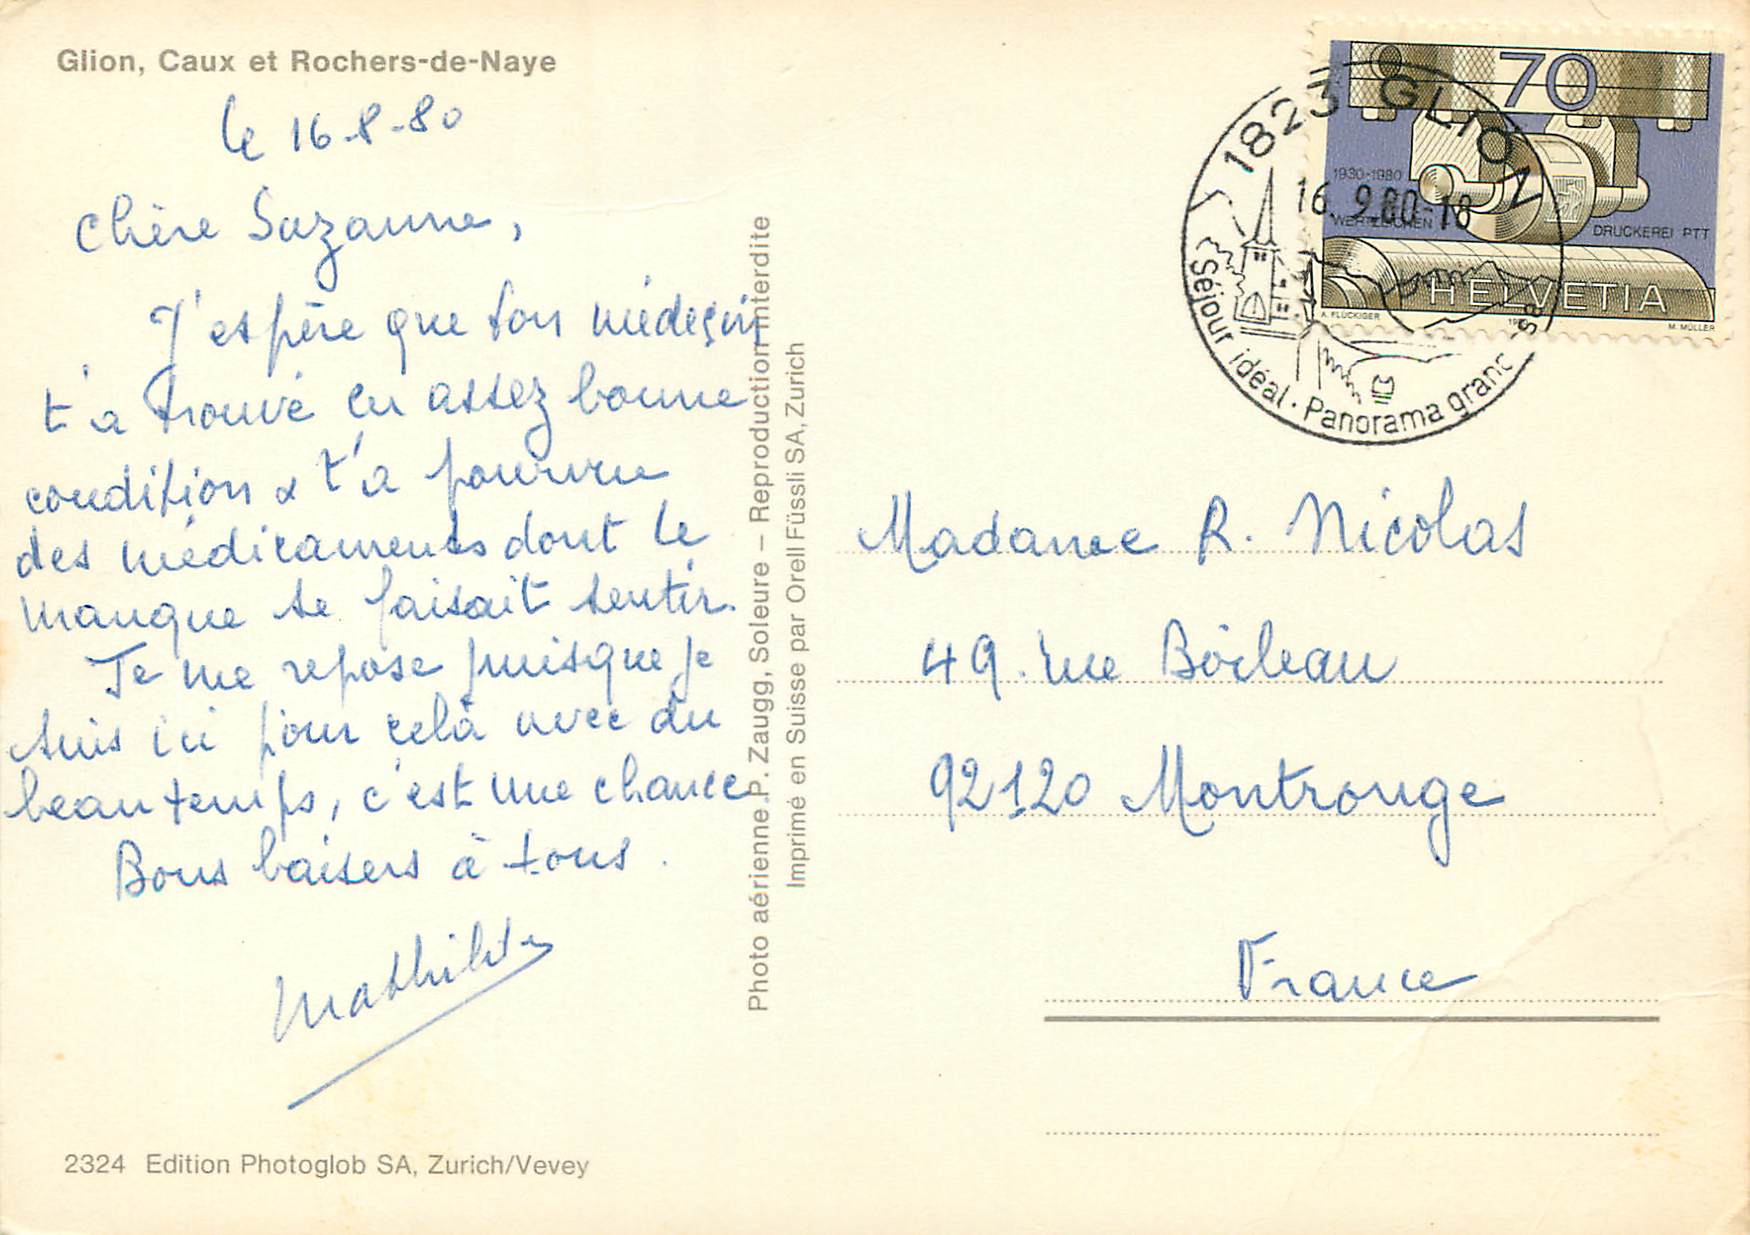 Glion, Caux et Rochers-de-Naye
le 16-8-80
Chère Suzanne,
J'espère que ton médecin
t'a trouvé en assez bonne
condition & t'a pourvu
des médicaments dont le
manque se faisait sentir.
Je me repose puisque je
suis ici pour celà avec du
beau temps, c'est une chance
Bons baisers à tous.
Mathilde
2324 Edition Photoglob SA, Zurich/Vevey
Photo aérienne P. Zaugg, Soleure – Reproduction interdite
Imprimé en Suisse par Orell Füssli SA, Zurich
70
1930-1980
WERTZEICHEN
DRUCKEREI PTT
HELVETIA
A. FLÜCKIGER
M. MÜLLER
1823 GLION
16.9.80-18
Séjour idéal · Panorama grand
Madame R. Nicolas
49. rue Boileau
92120 Montrouge
France